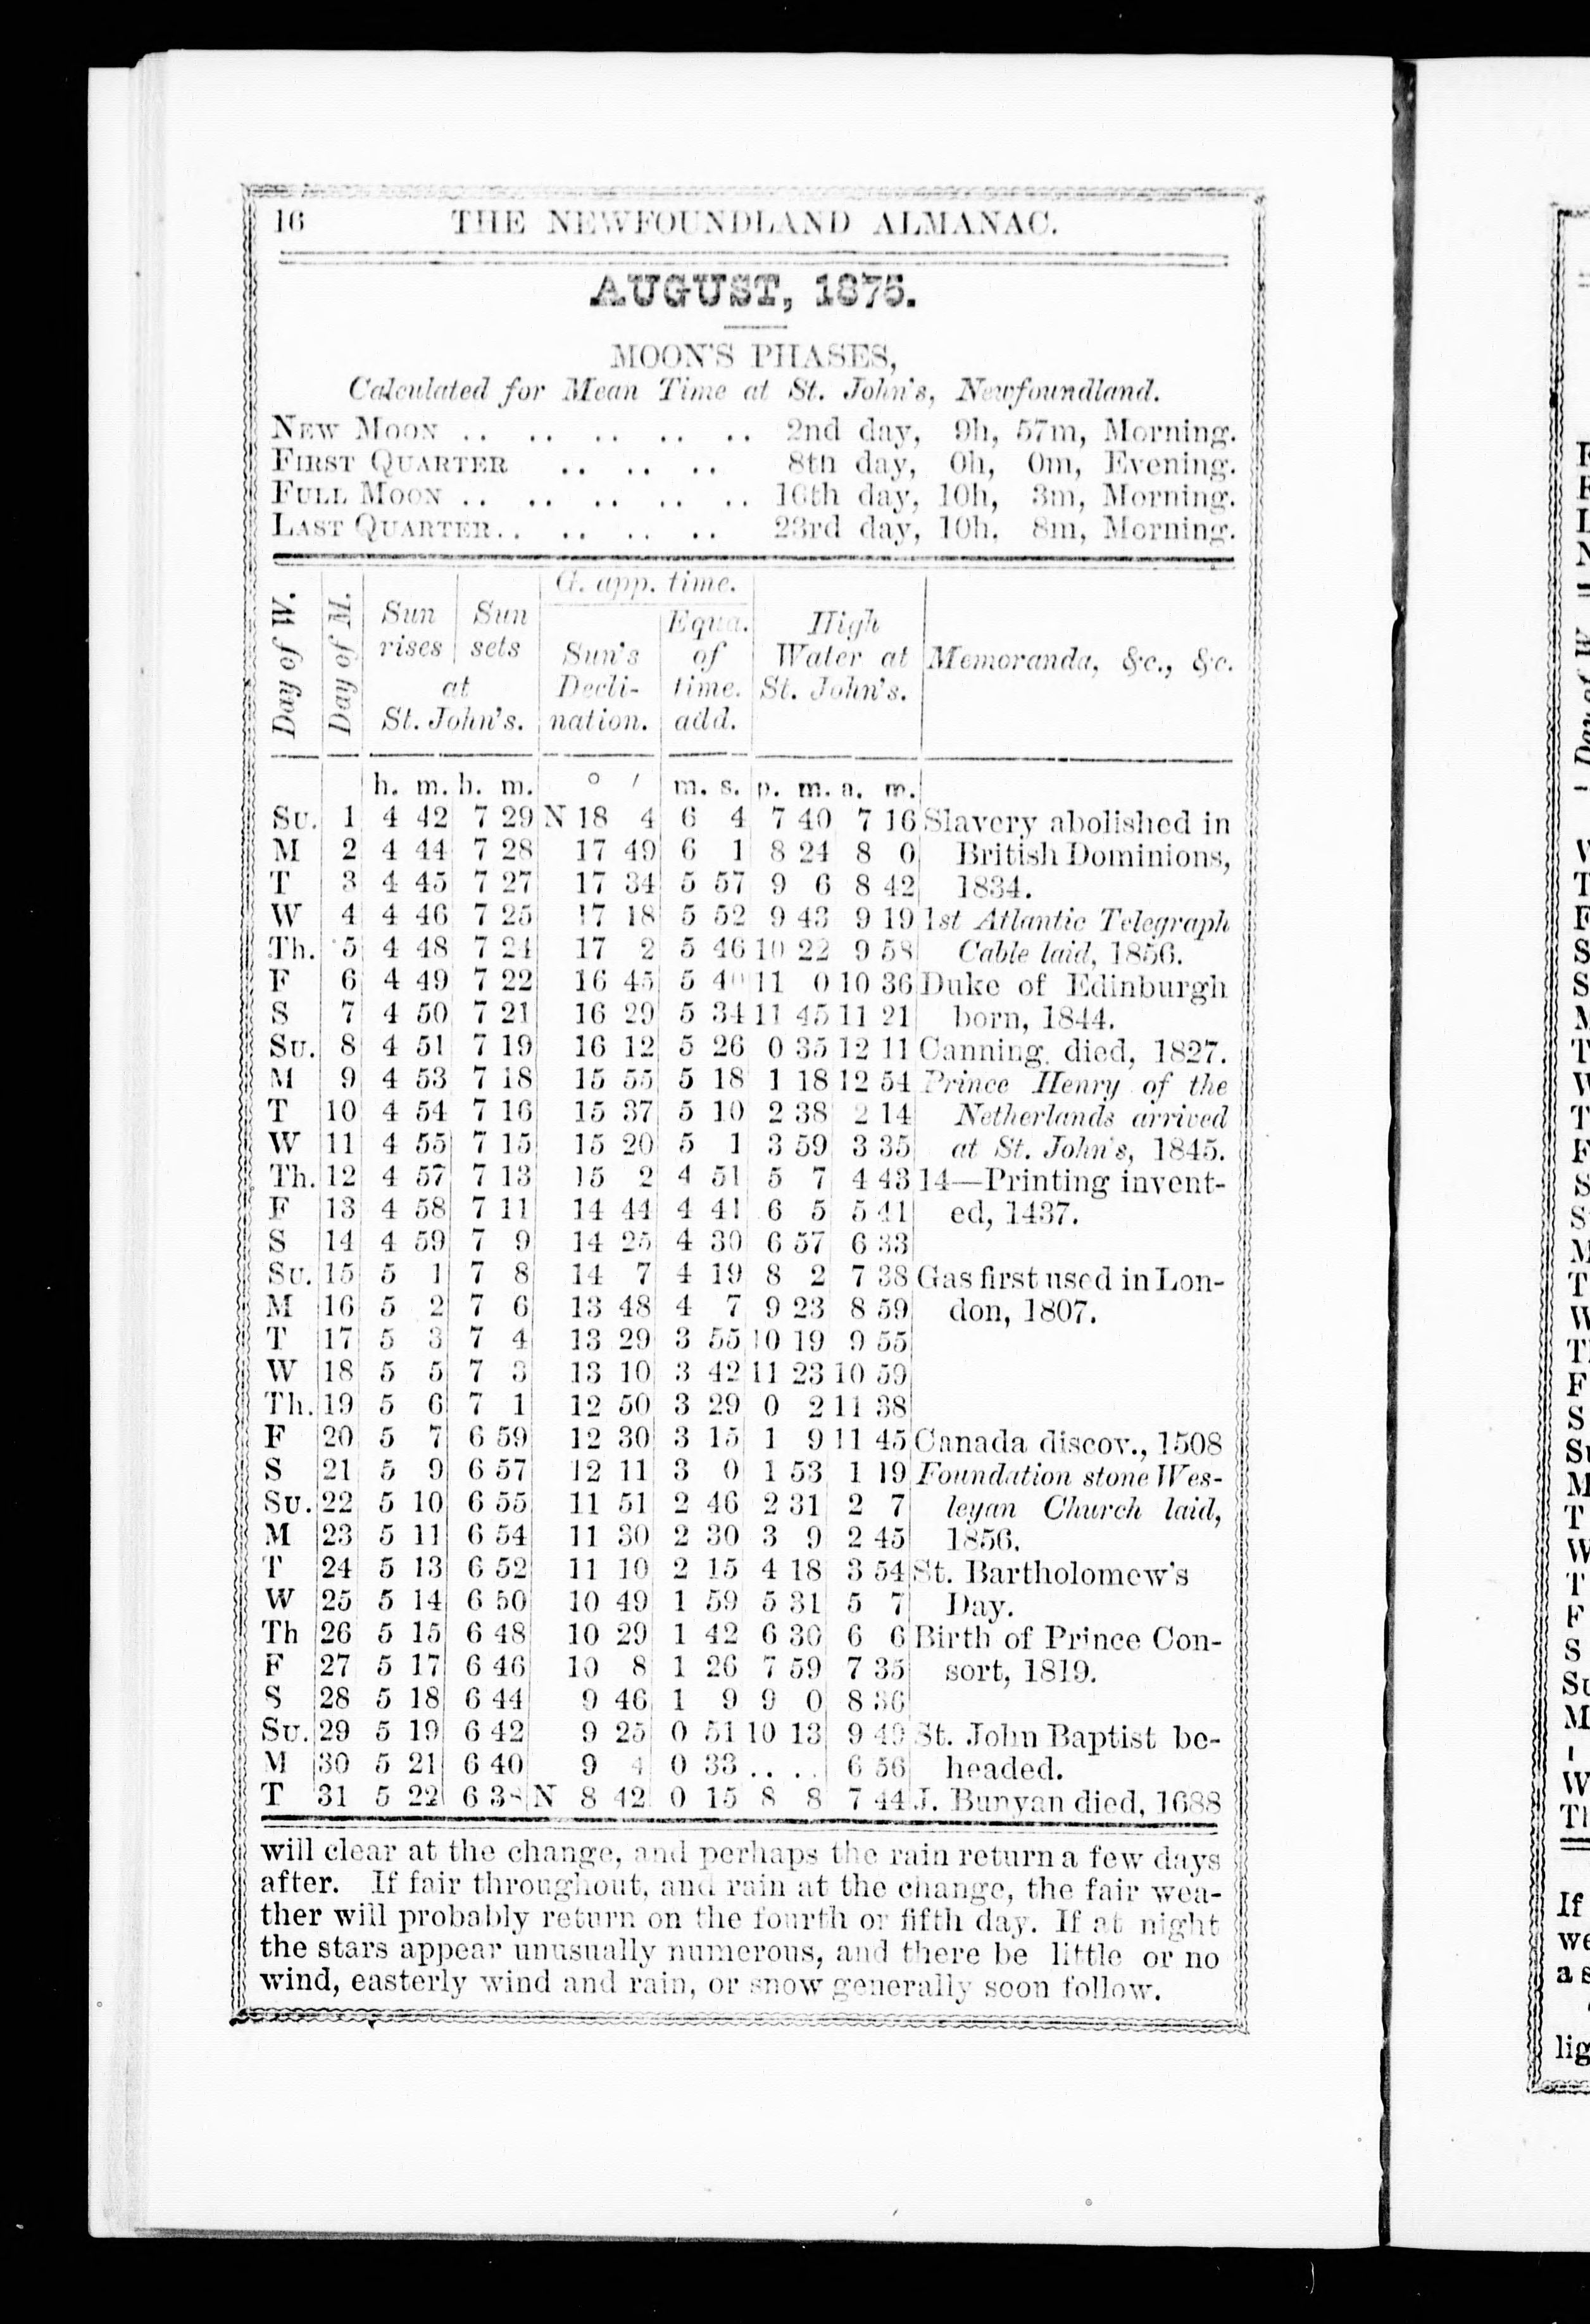 16 THE NEWFOUNDLAND ALMANAC.
AUGUST, 1875.
MOON'S PHASES,
Calculated for Mean Time at St. John's, Newfoundland.
NEW MOON .. .. .. .. .. 2nd day, 9h, 57m, Morning.
FIRST QUARTER .. .. .. 8th day, 0h, 0m, Evening.
FULL MOON .. .. .. .. .. 16th day, 10h, 3m, Morning.
LAST QUARTER.. .. .. .. 23rd day, 10h. 8m, Morning.
Day of W. Day of M. Sun rises Sun sets at St. John's. G. app. time. Sun's Decli- nation. Equa. of time. add. High Water at St. John's. Memoranda, &c., &c.
h. m. h. m. ° ′ m. s. p. m. a. m.
Su. 1 4 42 7 29 N 18 4 6 4 7 40 7 16 Slavery abolished in
M 2 4 44 7 28 17 49 6 1 8 24 8 0 British Dominions,
T 3 4 45 7 27 17 34 5 57 9 6 8 42 1834.
W 4 4 46 7 25 17 18 5 52 9 43 9 19 1st Atlantic Telegraph
Th. 5 4 48 7 24 17 2 5 46 10 22 9 58 Cable laid, 1856.
F 6 4 49 7 22 16 45 5 40 11 0 10 36 Duke of Edinburgh
S 7 4 50 7 21 16 29 5 34 11 45 11 21 born, 1844.
Su. 8 4 51 7 19 16 12 5 26 0 35 12 11 Canning died, 1827.
M 9 4 53 7 18 15 55 5 18 1 18 12 54 Prince Henry of the
T 10 4 54 7 16 15 37 5 10 2 38 2 14 Netherlands arrived
W 11 4 55 7 15 15 20 5 1 3 59 3 35 at St. John's, 1845.
Th. 12 4 57 7 13 15 2 4 51 5 7 4 43 14—Printing invent-
F 13 4 58 7 11 14 44 4 41 6 5 5 41 ed, 1437.
S 14 4 59 7 9 14 25 4 30 6 57 6 33
Su. 15 5 1 7 8 14 7 4 19 8 2 7 38 Gas first used in Lon-
M 16 5 2 7 6 13 48 4 7 9 23 8 59 don, 1807.
T 17 5 3 7 4 13 29 3 55 10 19 9 55
W 18 5 5 7 3 13 10 3 42 11 23 10 59
Th. 19 5 6 7 1 12 50 3 29 0 2 11 38
F 20 5 7 6 59 12 30 3 15 1 9 11 45 Canada discov., 1508
S 21 5 9 6 57 12 11 3 0 1 53 1 19 Foundation stone Wes-
Su. 22 5 10 6 55 11 51 2 46 2 31 2 7 leyan Church laid,
M 23 5 11 6 54 11 30 2 30 3 9 2 45 1856.
T 24 5 13 6 52 11 10 2 15 4 18 3 54 St. Bartholomew's
W 25 5 14 6 50 10 49 1 59 5 31 5 7 Day.
Th 26 5 15 6 48 10 29 1 42 6 30 6 6 Birth of Prince Con-
F 27 5 17 6 46 10 8 1 26 7 59 7 35 sort, 1819.
S 28 5 18 6 44 9 46 1 9 9 0 8 36
Su. 29 5 19 6 42 9 25 0 51 10 13 9 49 St. John Baptist be-
M 30 5 21 6 40 9 4 0 33 .. .. 6 56 headed.
T 31 5 22 6 38 N 8 42 0 15 8 8 7 44 J. Bunyan died, 1688
will clear at the change, and perhaps the rain return a few days
after. If fair throughout, and rain at the change, the fair wea-
ther will probably return on the fourth or fifth day. If at night
the stars appear unusually numerous, and there be little or no
wind, easterly wind and rain, or snow generally soon follow.